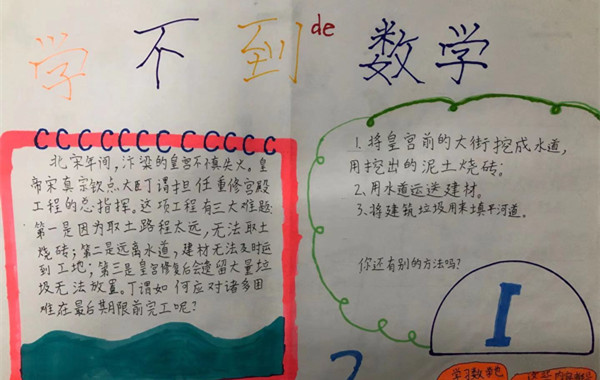 学不到de数学
北宋年间,汴梁的皇宫不慎失火。皇
帝宋真宗钦点大臣丁谓担任重修宫殿
工程的总指挥。这项工程有三大难题:
第一是因为取土路程太远,无法取土
烧砖;第二是远离水道,建材无法及时运
到工地;第三是皇宫修复后会遗留大量垃
圾无法放置。丁谓如何应对诸多困
难在最后期限前完工呢?
1.将皇宫前的大街挖成水道,
用挖出的泥土烧砖;
2.用水道运送建材。
3.将建筑垃圾用来填平河道。
你还有别的方法吗?
I
学习数